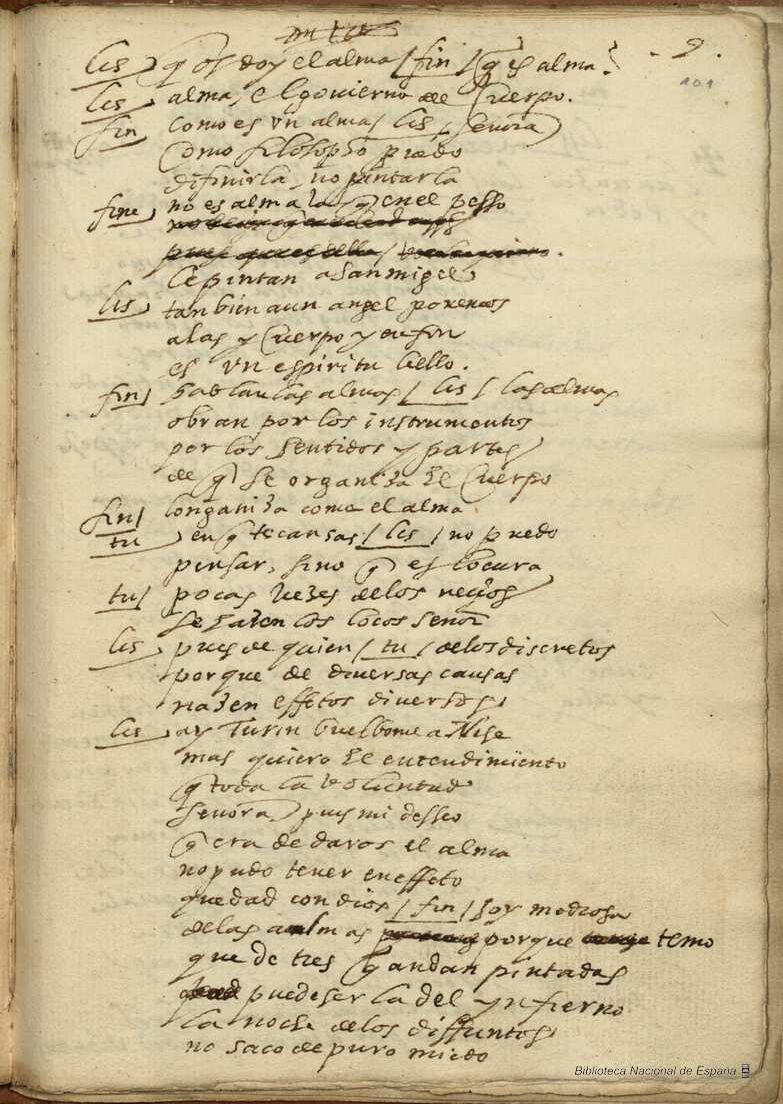 9.
101
Lis q os doy el alma / fin / q es alma?
Lis alma, el govierno del Cuerpo.
fin como es un alma / Lis / señora
Como filosopho puedo
difinirla, no pintarla
fine no es alma la q en el pesso
le pintan a San migel
Lis tanbien a un angel ponemos
alas y Cuerpo y en fin
es vn espiritu bello.
fin hablan las almas / Lis / las almas
obran por los instrumentos
por los sentidos y partes
de q se organiza el Cuerpo
fin longaniza come el alma
tu en q te cansas / Lis / no puedo
pensar, sino q es locura
tu pocas vezes de los neçios
se hazen los locos señor
Lis pues de quien / tu / de los discretos
porque de diversas causas
nazen effetos diversos
Lis ay Turin buelbome a Nise
mas quiero el entendimiento
q toda la voluntad
señora pues mi desseo
q era de daros el alma
no pudo tener en effeto
quedad con dios / fin / soy medrosa
de las almas porque temo
que de tres q andan pintadas
puede ser la del ynfierno
la noche de los diffuntos
no saco de puro miedo
Biblioteca Nacional de España